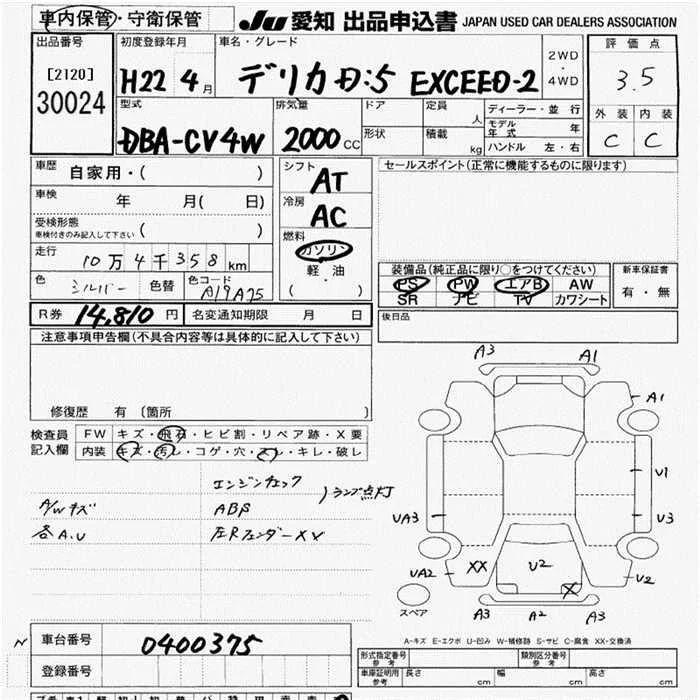 車内保管・守衛保管
JU 愛知 出品申込書 JAPAN USED CAR DEALERS ASSOCIATION
出品番号
[2120]
30024
初度登録年月
H22 4月
車名・グレード
デリカD:5 EXCEED-2
2WD
4WD
評価点
3.5
外装 内装
C C
型式
DBA-CV4W
排気量
2000 CC
ドア
形状
定員
人
積載
kg
ディーラー・並行
モデル年式 年
ハンドル 左・右
車歴 自家用・( )
車検 年 月( 日)
受検形態
車検付きのみ記入して下さい ( )
走行 10万4千358km
色 シルバー 色替 色コード A19A75
シフト
AT
冷房
AC
燃料
ガソリン
軽・油
( )
セールスポイント(正常に機能するものに限ります)
装備品(純正品に限り○をつけてください)
PS PW エアB AW
SR ナビ TV カワシート
新車保証書
有・無
R券 14,810 円 名変通知期限 月 日
後日品
注意事項申告欄(不具合内容等は具体的に記入して下さい)
修復歴 有 (箇所 )
検査員
記入欄
FW キズ・飛石・ヒビ割・リペア跡・X要
内装 キズ・汚レ・コゲ・穴・スレ・キレ・破レ
エンジンチェック
ABS
)ランプ点灯
A/Wキズ
各A.U
左Rフェンダー XX
A3 A1
A1
U1
UA3 U3
UA2 XX U2 X U2
スペア
A3 A2 A3
A-キズ E-エクボ U-凹み W-補修跡 S-サビ C-腐食 XX-交換済
N
車台番号 0400375
登録番号
形式指定番号
参考
類別区分番号
参考
車庫証明用
参考
長さ cm 幅 cm 高さ cm